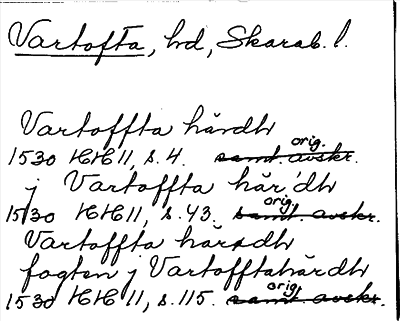 Vartofta, hd, Skarab. l.
Vartoffta härdh
1530 HH 11, s. 4. samt. avskr. orig.
j Vartoffta här´dh
1530 HH 11, s. 43. samt. avskr. orig.
Vartoffta häradh
fogten j Vartofftahärdh
1530 HH 11, s. 115. samt. avskr. orig.